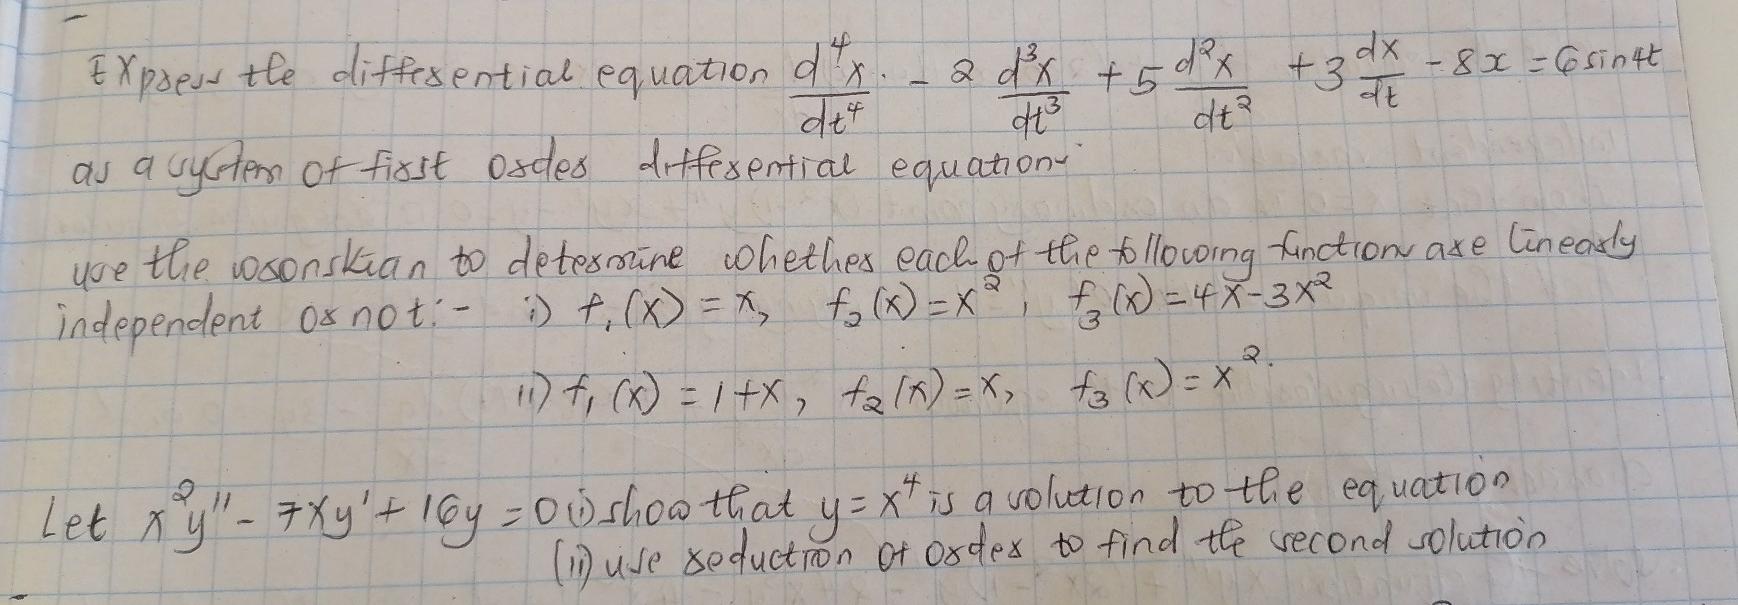 Express the differential equation d⁴x/dt⁴ - 2 d³x/dt³ + 5 d²x/dt² + 3 dx/dt - 8x = 6sin4t
as a system of first order differential equation.
use the wronskian to determine whether each of the following functions are linearly
independent or not:- i) f₁(x) = x, f₂(x) = x², f₃(x) = 4x-3x²
ii) f₁(x) = 1+x, f₂(x) = x, f₃(x) = x².
Let x²y'' - 7xy' + 16y = 0 (i) show that y = x⁴ is a solution to the equation
(ii) use reduction of order to find the second solution